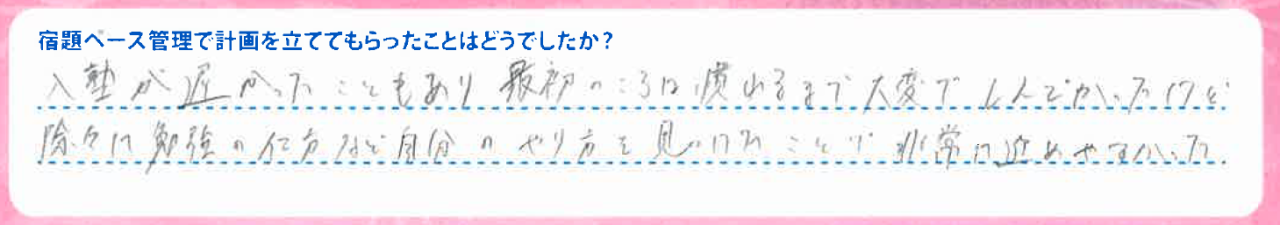 宿題ペース管理で計画を立ててもらったことはどうでしたか？
入塾が遅かったこともあり最初のころは慣れるまで大変でしんどかったけど
除々に勉強の仕方など自分のやり方を見つけれ ことが 非常に進めやすかった.